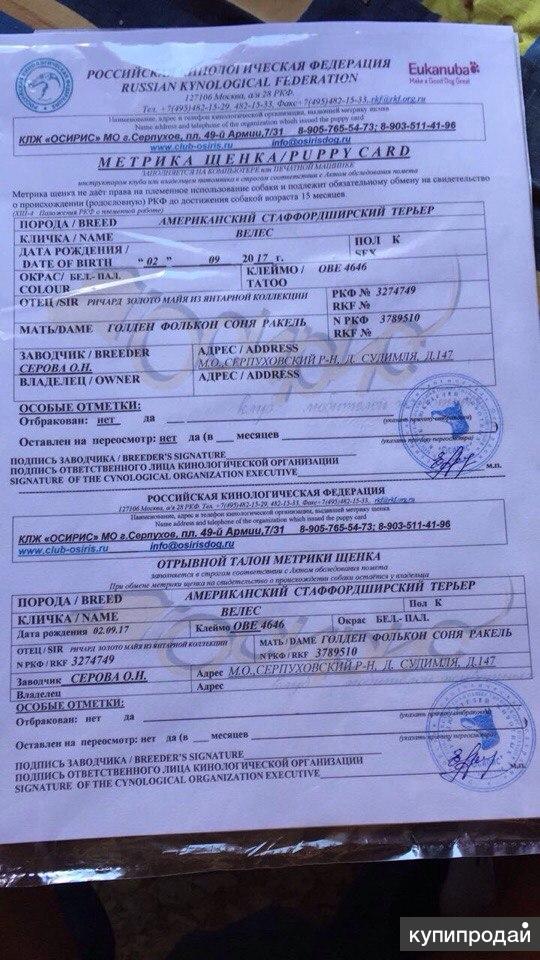 РОССИЙСКАЯ КИНОЛОГИЧЕСКАЯ ФЕДЕРАЦИЯ
RUSSIAN KYNOLOGICAL FEDERATION
Eukanuba
Make a Good Dog Great
127106 Москва, а/я 28 РКФ.
Тел. +7(495)482-15-29, 482-15-33, Факс+7(495)482-15-33, rkf@rkf.org.ru
Наименование, адрес и телефон кинологической организации, выдавшей метрику щенка
Name address and telephone of the organization which issued the puppy card
КЛЖ «ОСИРИС» МО г.Серпухов, пл. 49-й Армии,7/31 8-905-765-54-73; 8-903-511-41-96
www.club-osiris.ru info@osirisdog.ru
МЕТРИКА ЩЕНКА/PUPPY CARD
ЗАПОЛНЯЕТСЯ НА КОМПЬЮТЕРЕ или ПЕЧАТНОЙ МАШИНКЕ
инструктором клуба или владельцем питомника в строгом соответствии с Актом обследования помета
Метрика щенка не даёт права на племенное использование собаки и подлежит обязательному обмену на свидетельство
о происхождении (родословную) РКФ до достижения собакой возраста 15 месяцев.
Положения РКФ о племенной работе)
ПОРОДА / BREED АМЕРИКАНСКИЙ СТАФФОРДШИРСКИЙ ТЕРЬЕР
КЛИЧКА / NAME ВЕЛЕС
ДАТА РОЖДЕНИЯ / ПОЛ К
DATE OF BIRTH “ 02 ” 09 2017 г. SEX
ОКРАС/ БЕЛ.- ПАЛ. КЛЕЙМО / OBE 4646
COLOUR TATOO
ОТЕЦ /SIR РИЧАРД ЗОЛОТО МАЙЯ ИЗ ЯНТАРНОЙ КОЛЛЕКЦИИ РКФ № 3274749
RKF №
МАТЬ/DAME ГОЛДЕН ФОЛЬКОН СОНЯ РАКЕЛЬ N РКФ 3789510
RKF №
ЗАВОДЧИК / BREEDER АДРЕС / ADDRESS
СЕРОВА О.Н. М.О.,СЕРПУХОВСКИЙ Р-Н, Д. СУДИМЛЯ, Д.147
ВЛАДЕЛЕЦ / OWNER АДРЕС / ADDRESS
ОСОБЫЕ ОТМЕТКИ:
Отбракован: нет да
(указать причину отбраковки)
Оставлен на пересмотр: нет да (в ___ месяцев
(указать причину пересмотра)
ПОДПИСЬ ЗАВОДЧИКА / BREEDER'S SIGNATURE
ПОДПИСЬ ОТВЕТСТВЕННОГО ЛИЦА КИНОЛОГИЧЕСКОЙ ОРГАНИЗАЦИИ
SIGNATURE OF THE CYNOLOGICAL ORGANIZATION EXECUTIVE М.П.
РОССИЙСКАЯ КИНОЛОГИЧЕСКАЯ ФЕДЕРАЦИЯ
127106 Москва, а/я 28 РКФ, Тел. +7(495)482-15-29, 482-15-33, Факс+7(495)482-15-33, rkf@rkf.org.ru
Наименование, адрес и телефон кинологической организации, выдавшей метрику щенка
Name address and telephone of the organization which issued the puppy card
КЛЖ «ОСИРИС» МО г.Серпухов, пл. 49-й Армии,7/31 8-905-765-54-73; 8-903-511-41-96
www.club-osiris.ru info@osirisdog.ru
ОТРЫВНОЙ ТАЛОН МЕТРИКИ ЩЕНКА
заполняется в строгом соответствии с Актом обследования помета
При обмене метрики щенка на свидетельство о происхождении собаки остаётся у владельца
ПОРОДА / BREED АМЕРИКАНСКИЙ СТАФФОРДШИРСКИЙ ТЕРЬЕР
КЛИЧКА / NAME ВЕЛЕС Пол К
Дата рождения 02.09.17 Клеймо OBE 4646 Окрас БЕЛ.- ПАЛ.
ОТЕЦ /SIR РИЧАРД ЗОЛОТО МАЙЯ ИЗ ЯНТАРНОЙ КОЛЛЕКЦИИ МАТЬ / DAME ГОЛДЕН ФОЛЬКОН СОНЯ РАКЕЛЬ
N РКФ / RKF 3274749 N РКФ / RKF 3789510
Заводчик СЕРОВА О.Н. Адрес М.О.,СЕРПУХОВСКИЙ Р-Н, Д. СУДИМЛЯ, Д.147
Владелец Адрес
ОСОБЫЕ ОТМЕТКИ:
Отбракован: нет да
(указать причину отбраковки)
Оставлен на пересмотр: нет да (в ___ месяцев
(указать причину пересмотра)
ПОДПИСЬ ЗАВОДЧИКА / BREEDER'S SIGNATURE
ПОДПИСЬ ОТВЕТСТВЕННОГО ЛИЦА КИНОЛОГИЧЕСКОЙ ОРГАНИЗАЦИИ
SIGNATURE OF THE CYNOLOGICAL ORGANIZATION EXECUTIVE М.П.
купипродай